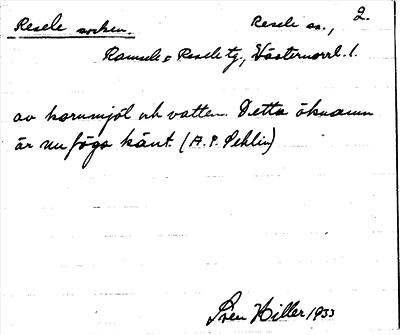 Resele socken.
Resele sn., 2.
Ramsele o Resele tg., Västernorrl. l.
av kornmjöl och vatten. Detta öknamn
är nu föga känt. (A. P. Sehlin)
Sven Hiller 1933